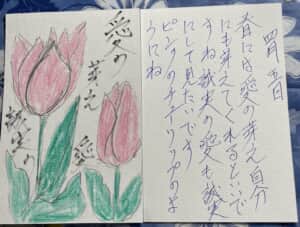 愛の
芽え
誠実の
愛
春には愛の芽え自分
にも芽えてくれるといいで
すね誠実の愛も誠実
にして見たいです
ピンクのチューリップのよ
うにね